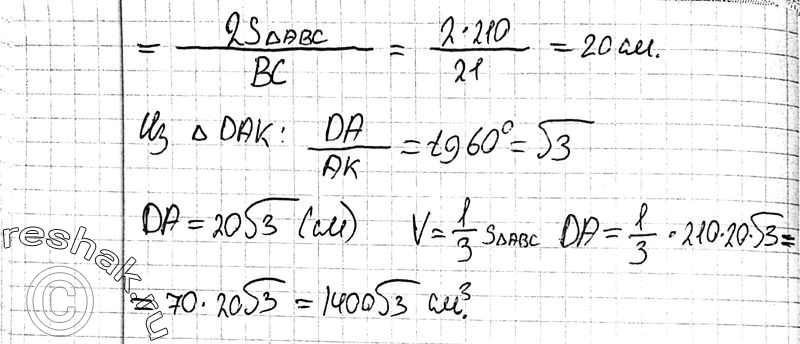 = 2S△ABC / BC = 2·210 / 21 = 20 см.
Из △ DAK: DA / AK = tg 60° = √3
DA = 20√3 (см) V = 1/3 S△ABC DA = 1/3 · 210·20·√3 =
= 70·20√3 = 1400√3 см³.
reshak.ru
©